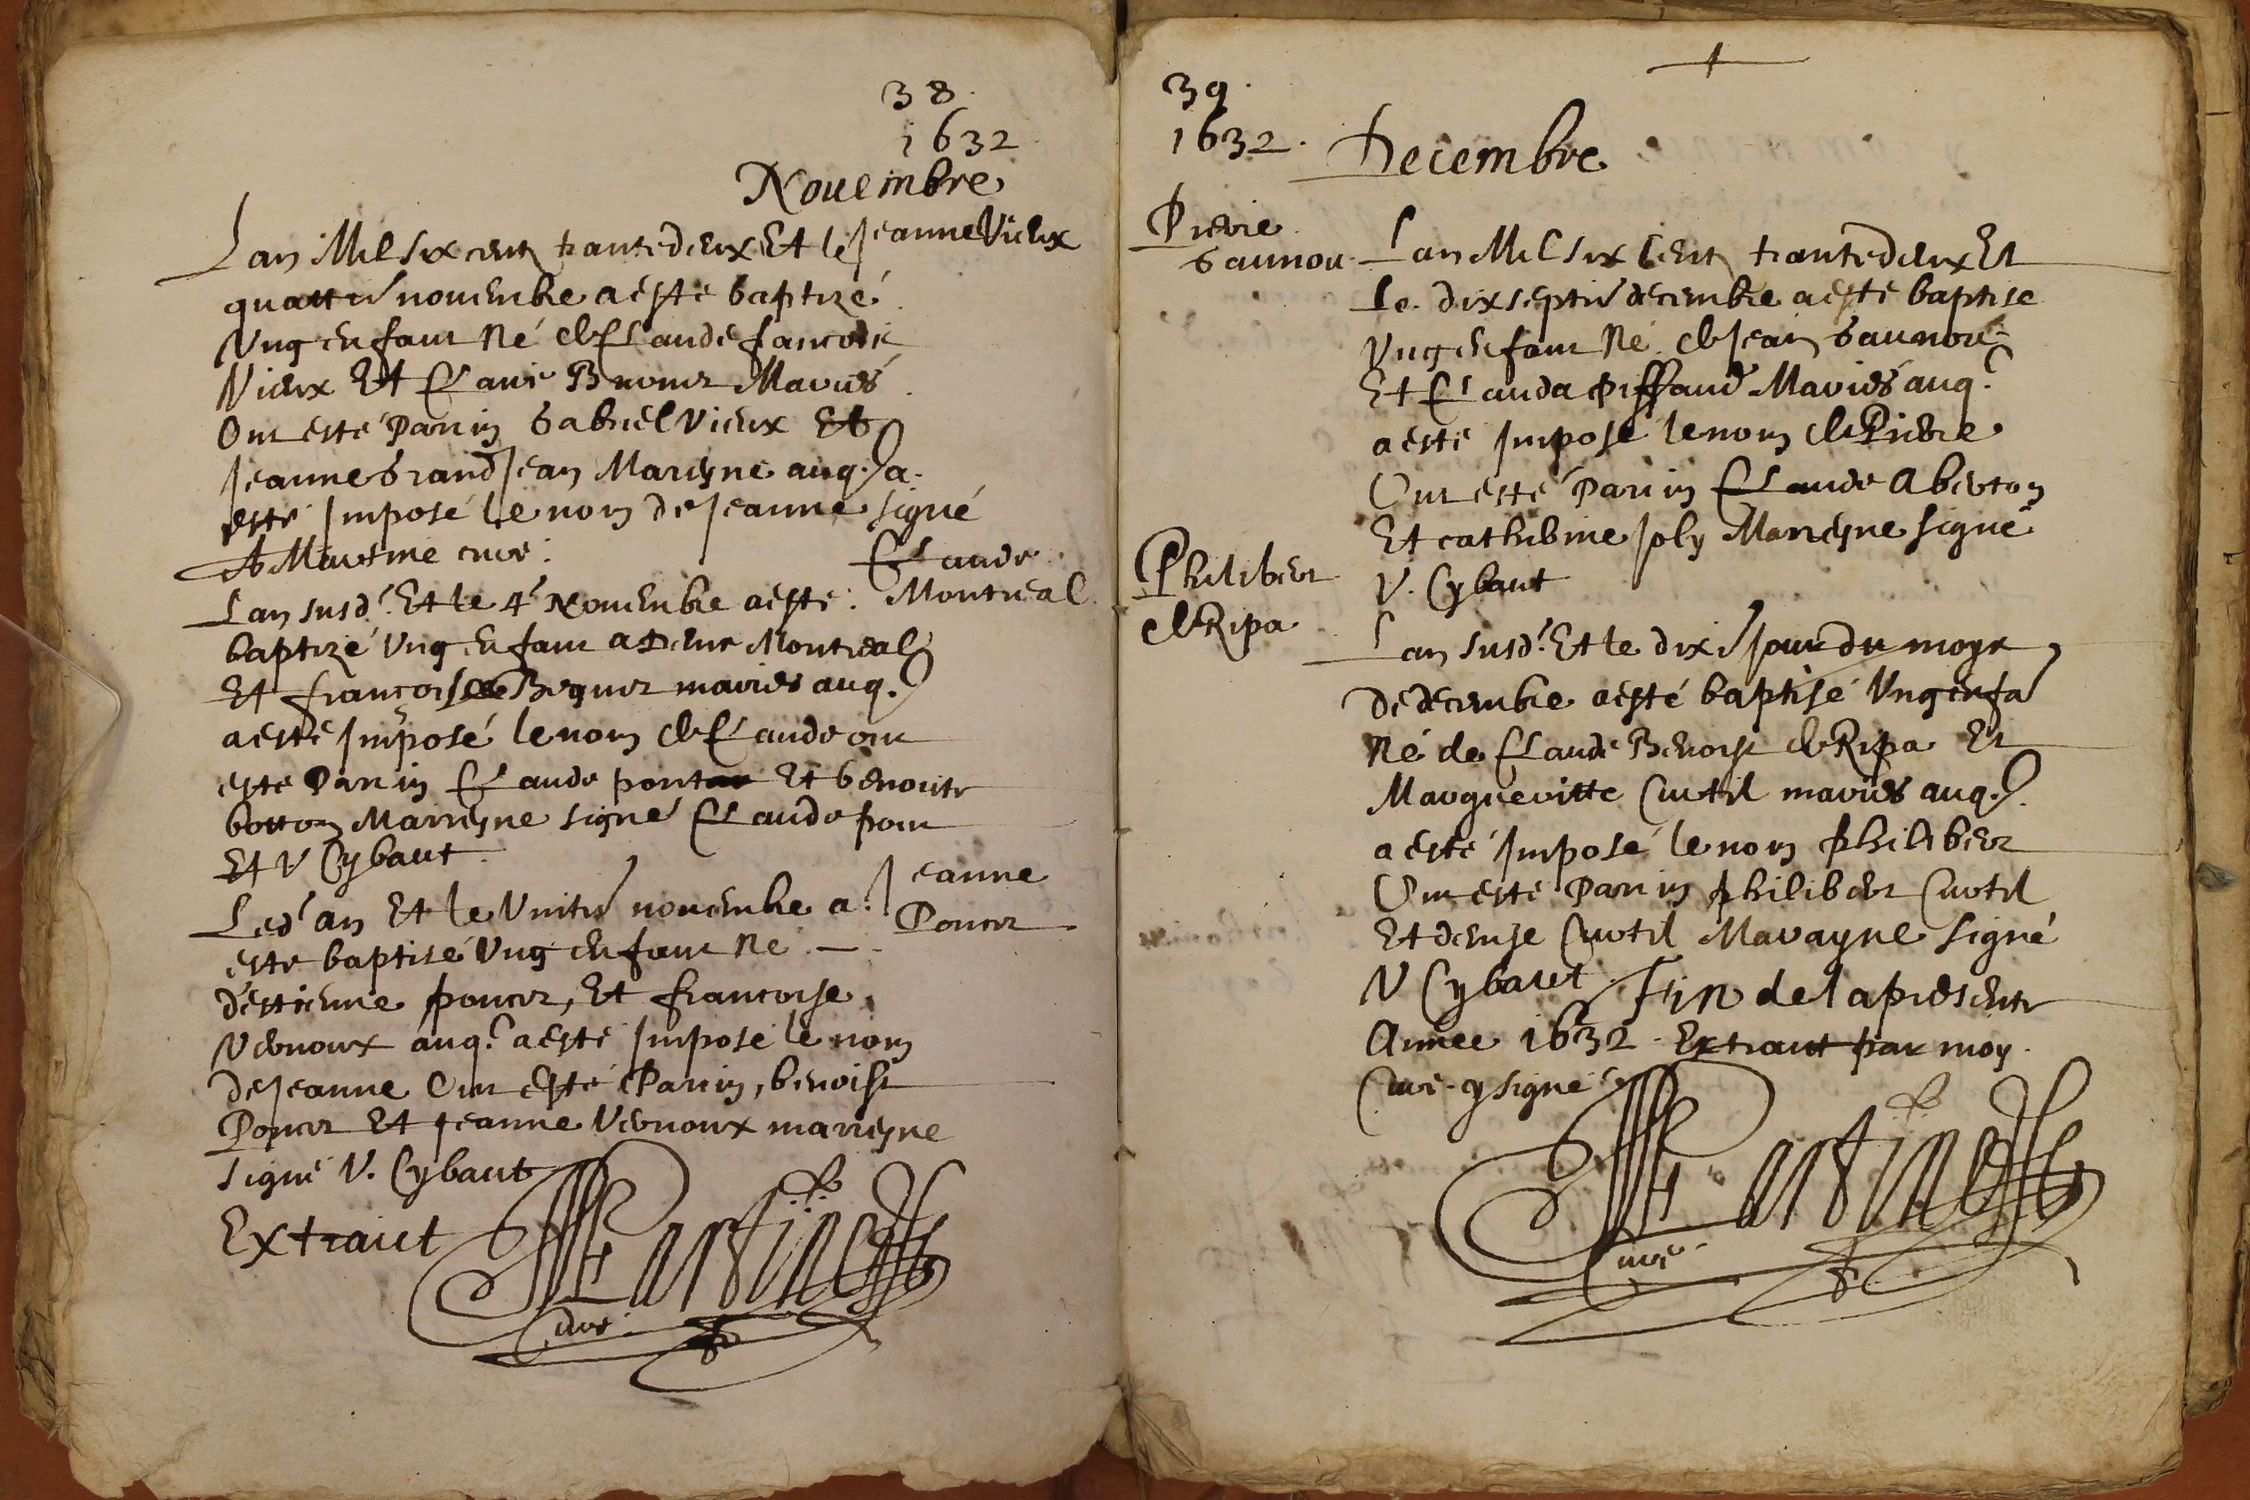 38.
1632
Nouembre
Lan Mil six cents trante deux Et le
Jeanne Vieux
quattre nouembre a este baptizé
Vng enfant Né de Claude francois
Vieux Et Claire Mariés
Ont esté Parin Gabriel Vieux Et
Jeanne Grand Jean Mareyne auq. a
esté Imposé le nom de Jeanne signé
cure.
Lan susd. Et le 4e Nouembre a esté.
Claude
Montreal
baptizé Vng enfant a Montreal
Et françoise mariés auq.
a esté Imposé le nom de Claude ont
esté Parin Claude pont Et benoite
botton Marreyne signé Claude pont
Et V Cybaut
Led an Et le nouembre a.
Jeanne
Poncet
esté baptisé Vng enfant Né —
d'estienne poncet, Et francoise
Vernoux auq. a esté Imposé le nom
de Jeanne Ont Esté Parin, benoist
Poncet Et Jeanne Vernoux marreyne
signé V. Cybaut
Extraict
Cure
39.
1632.
Decembre
Pierre
Gaunon
Lan Mil six Cents trante deux Et
Le dix sept decembre a esté baptisé
Vng enfant Né de Jean Gaunon
Et Clauda Piffaud Mariés auq.
a esté Imposé le nom de Pierre
Ont esté Parin Claude Aberton
Et catherine Joly Marreyne signé
V. Cybaut
Philibert
de Ripa
Lan susd. Et le dix Jour du moys
de decembre a esté baptisé Vng enfa
Né de Claude Benoist de Ripa Et
Margueritte Curtil mariés auq.
a esté Imposé le nom philibert
Ont esté Parin philibert Curtil
Et denise Curtil Marayne signé
V Cybaut Fin de la presente
Année 1632. Extraict par moy
Cure sy signé
Cure